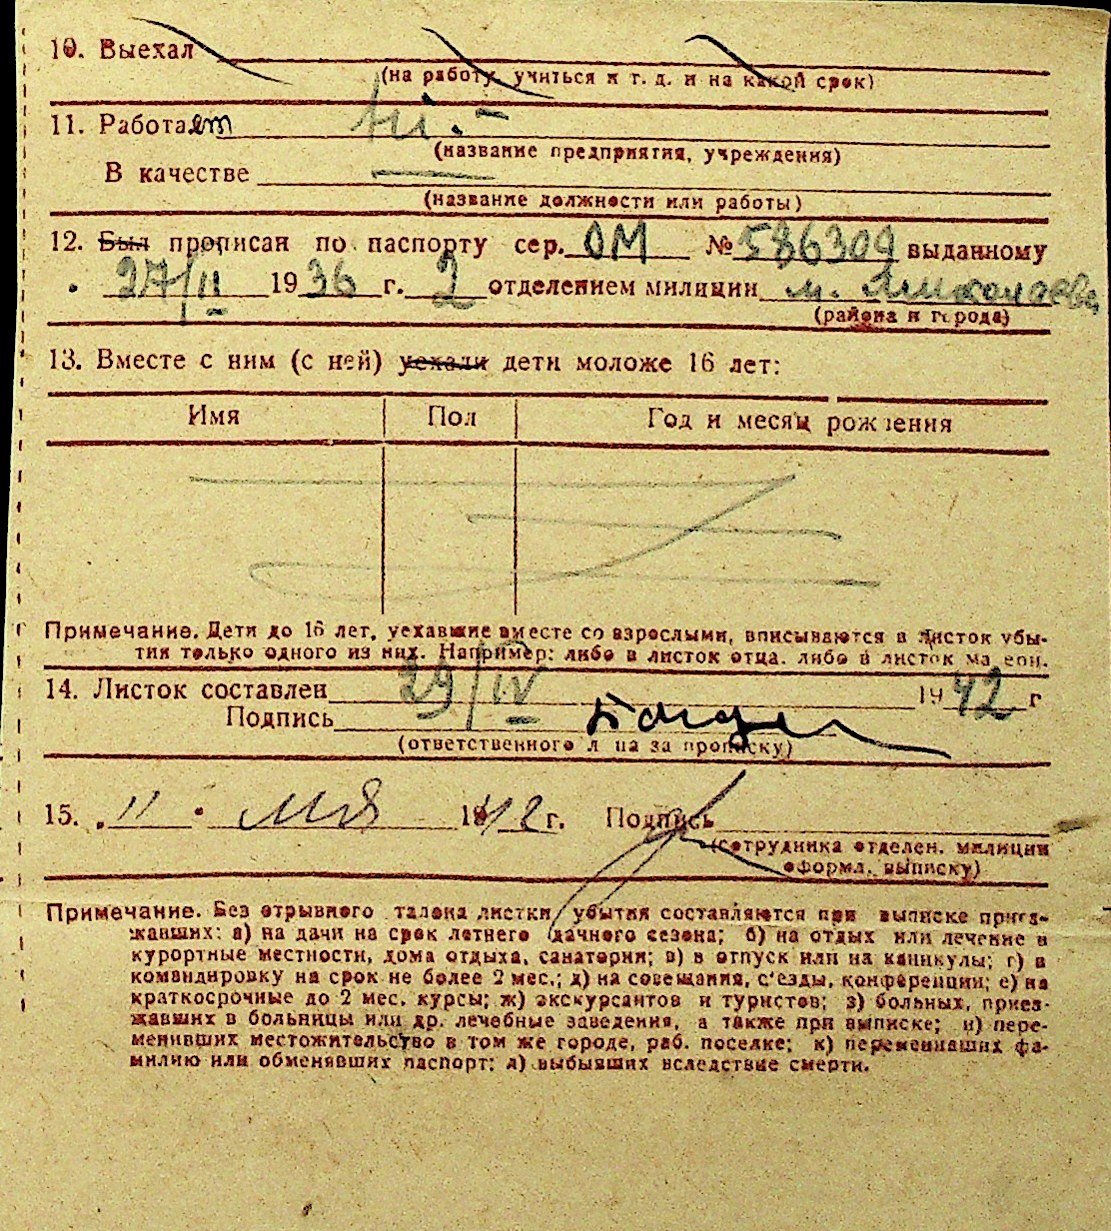 10. Выехал
(на работу, учиться и т. д. и на какой срок)
11. Работает
(название предприятия, учреждения)
В качестве
(название должности или работы)
12. Был прописан по паспорту сер. ОМ № 586309 выданному
27/II 1936 г. 2 отделением милиции г. Николаева
(района и города)
13. Вместе с ним (с ней) уехали дети моложе 16 лет:
Имя Пол Год и месяц рождения
Примечание. Дети до 16 лет, уехавшие вместе со взрослыми, вписываются в листок убы-
тия только одного из них. Например: либо в листок отца, либо в листок матери.
14. Листок составлен 29/IV 1942 г
Подпись
(ответственного лица за прописку)
15. „11" мая 1942 г. Подпись
(сотрудника отделен. милиции
оформл. выписку)
Примечание. Без отрывного талона листки убытия составляются при выписке приез-
жавших: а) на дачи на срок летнего дачного сезона; б) на отдых или лечение в
курортные местности, дома отдыха, санатории; в) в отпуск или на каникулы; г) в
командировку на срок не более 2 мес.; д) на совещания, с'езды, конференции; е) на
краткосрочные до 2 мес. курсы; ж) экскурсантов и туристов; з) больных, приез-
жавших в больницы или др. лечебные заведения, а также при выписке; и) пере-
менивших местожительство в том же городе, раб. поселке; к) переменивших фа-
милию или обменявших паспорт; л) выбывших вследствие смерти.